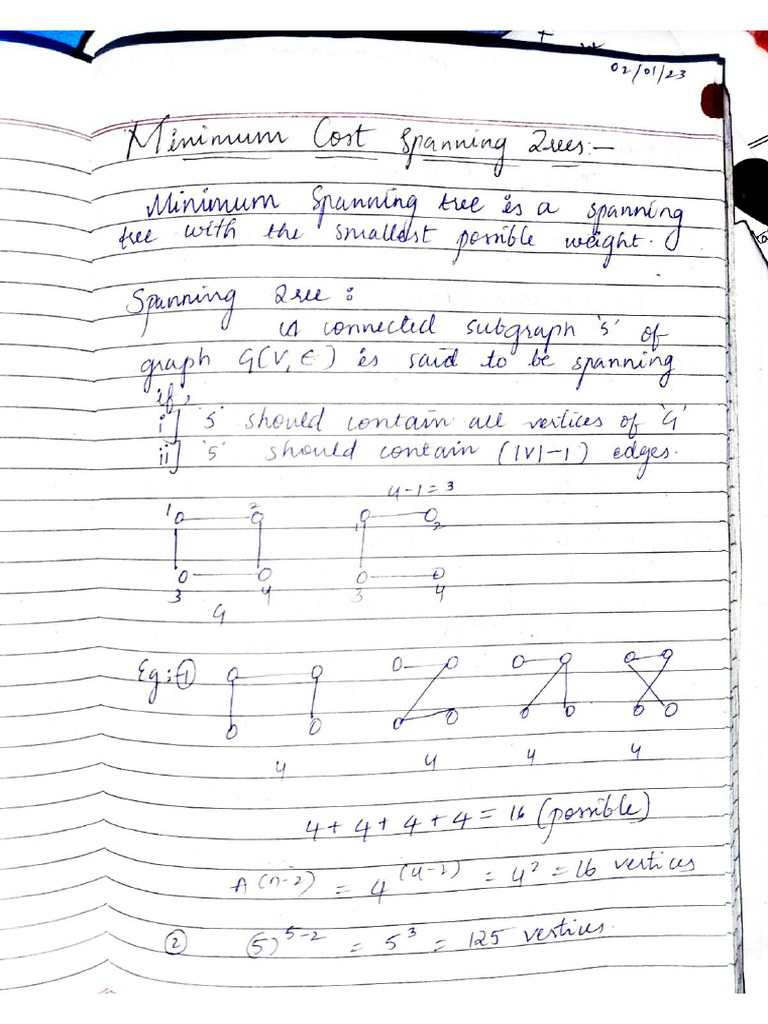 02/01/23
Minimum Cost Spanning Trees:-
Minimum Spanning tree is a spanning
tree with the smallest possible weight.
Spanning Tree :
A connected subgraph 'S' of
graph G(V, E) is said to be spanning
if,
i] 'S' should contain all vertices of 'G'
ii] 'S' should contain (|V|-1) edges.
4-1=3
1 2 1 2
3 4 3 4
G
Eg:-①
4 4 4 4
4+4+4+4=16 (possible)
n(n-2) = 4(4-2) = 4² = 16 vertices
② (5)5-2 = 5³ = 125 vertices.